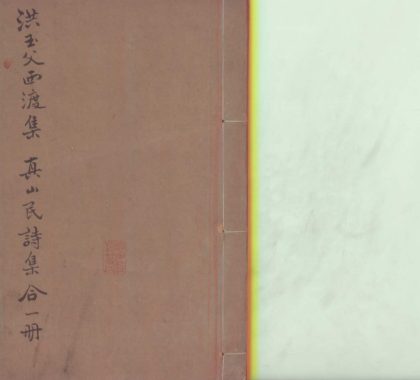 洪玉父西渡集 真山民詩集合一册